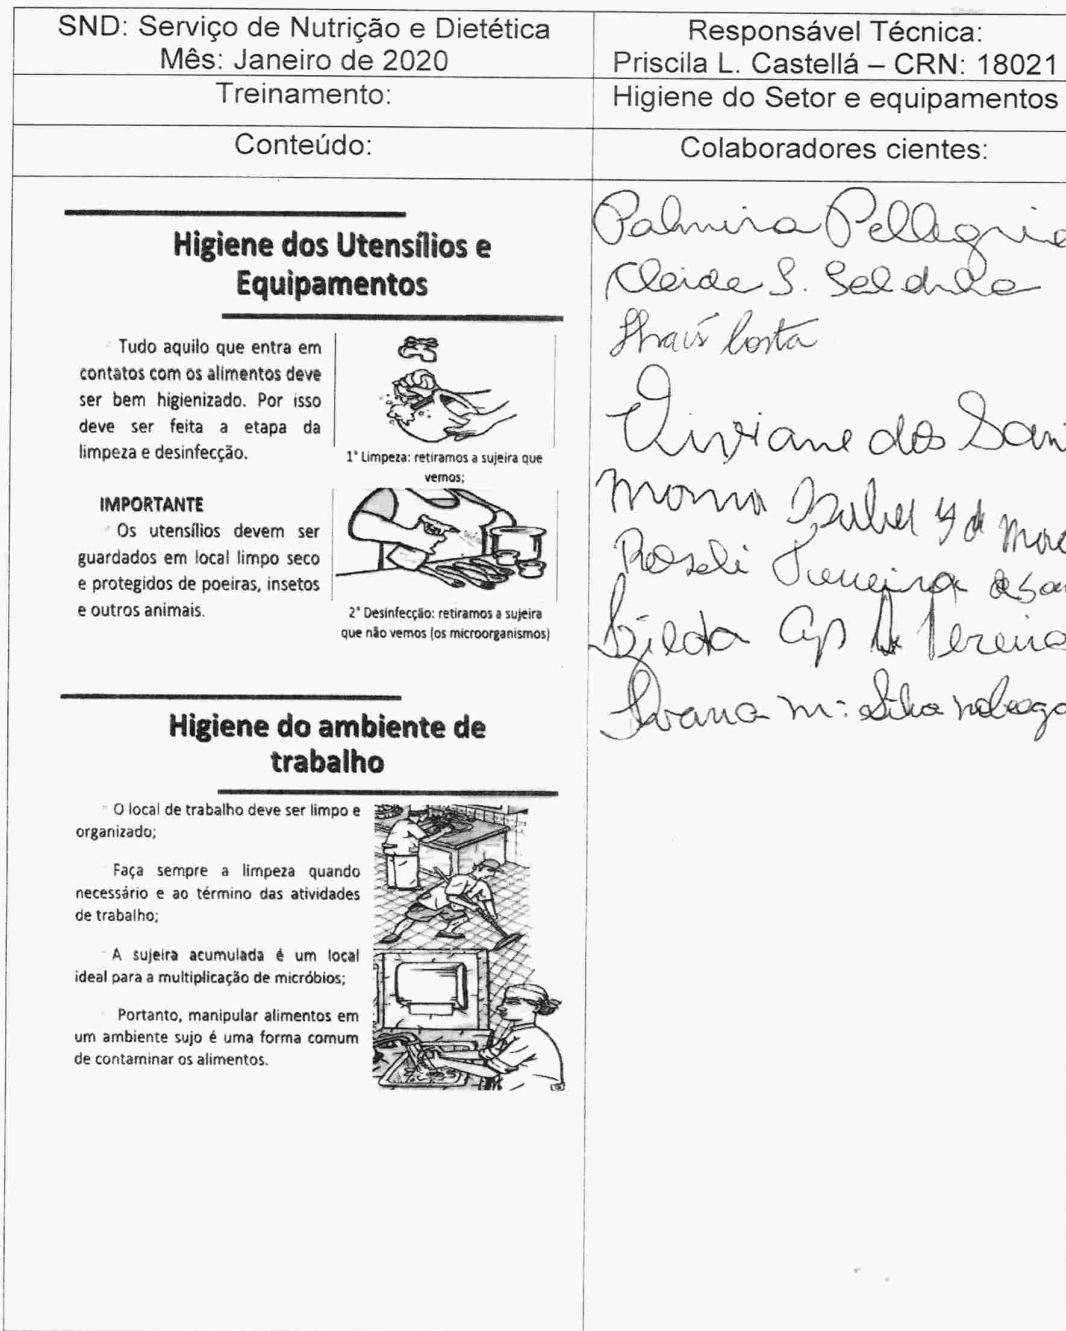 SND: Serviço de Nutrição e Dietética
Mês: Janeiro de 2020
Responsável Técnica:
Priscila L. Castellá – CRN: 18021
Treinamento:
Higiene do Setor e equipamentos
Conteúdo:
Colaboradores cientes:
Higiene dos Utensílios e
Equipamentos
Tudo aquilo que entra em
contatos com os alimentos deve
ser bem higienizado. Por isso
deve ser feita a etapa da
limpeza e desinfecção.
1ª Limpeza: retiramos a sujeira que
vemos;
IMPORTANTE
Os utensílios devem ser
guardados em local limpo seco
e protegidos de poeiras, insetos
e outros animais.
2ª Desinfecção: retiramos a sujeira
que não vemos (os microorganismos)
Higiene do ambiente de
trabalho
O local de trabalho deve ser limpo e
organizado;
Faça sempre a limpeza quando
necessário e ao término das atividades
de trabalho;
A sujeira acumulada é um local
ideal para a multiplicação de micróbios;
Portanto, manipular alimentos em
um ambiente sujo é uma forma comum
de contaminar os alimentos.
Palmira
Cleide S.
Thaís Costa
Viviane dos
Isabel
Roseli
Gilda Ap
Ivana Mª Silva